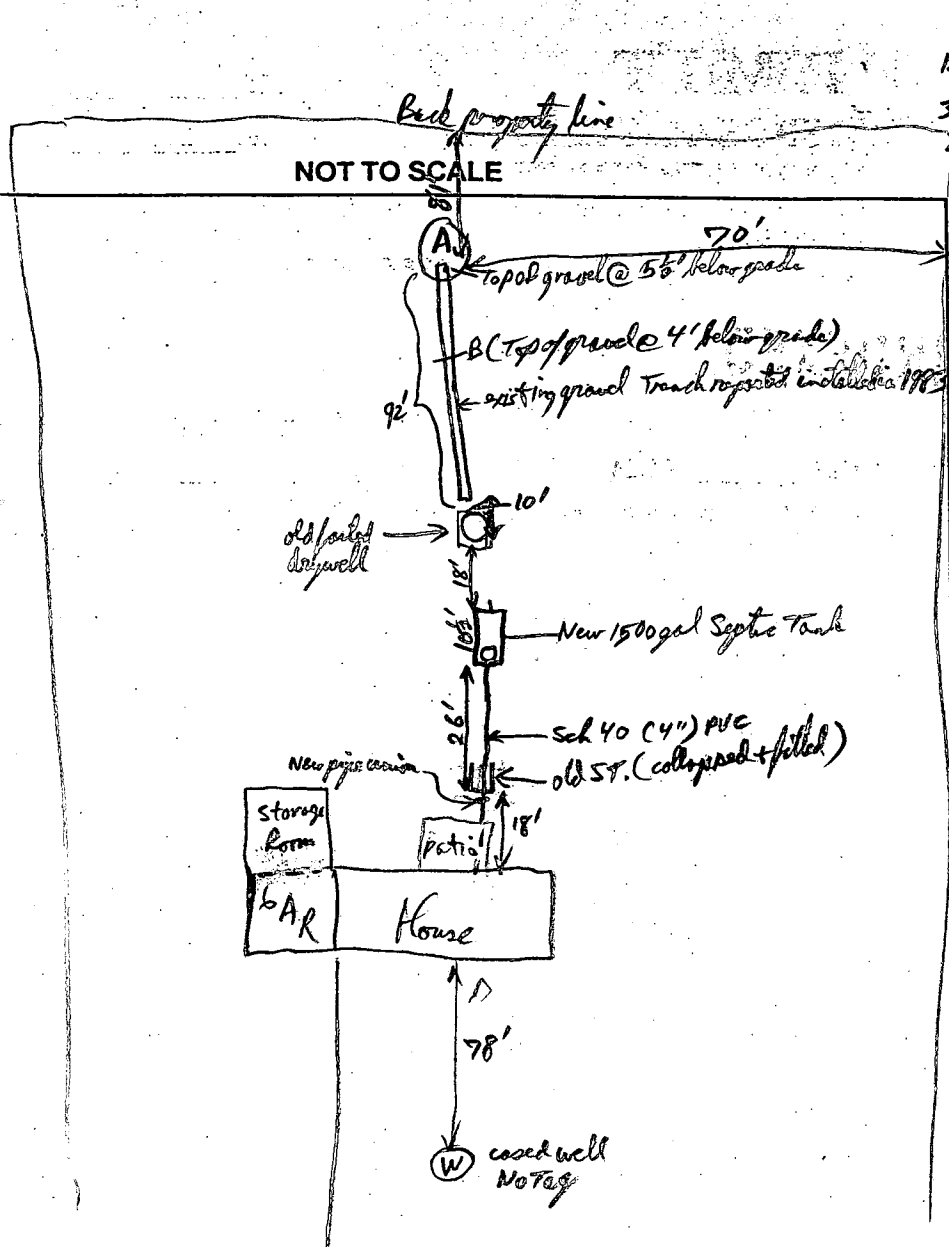 Back property line
NOT TO SCALE
81'
A
70'
Top of gravel @ 5½' below grade
B (Top of gravel @ 4' below grade)
existing gravel Trench reported installed in 1983
92'
10'
old failed
drywell
18'
10½'
New 1500 gal Septic Tank
26'
Sch 40 (4") PVC
old S.T. (collapsed + filled)
New pipe
18'
Storage
Room
patio
GAR
House
78'
W
cased well
No Tag